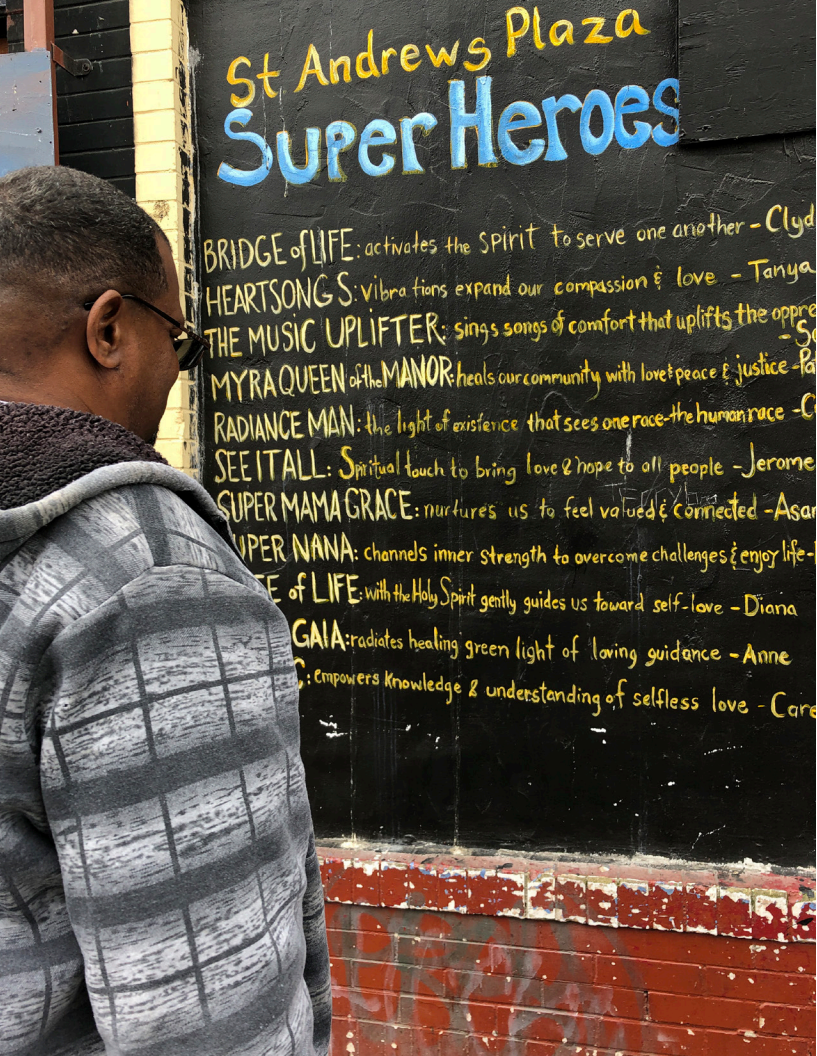 St Andrews Plaza
Super Heroes
BRIDGE of LIFE: activates the SPIRIT to serve one another - Clyd
HEARTSONGS: vibrations expand our compassion & love - Tanya
THE MUSIC UPLIFTER: sings songs of comfort that uplifts the oppre
- So
MYRA QUEEN of the MANOR: heals our community with love & peace & justice - Pa
RADIANCE MAN: the light of existence that sees one race - the human race - C
SEE IT ALL: Spiritual touch to bring love & hope to all people - Jerome
SUPER MAMA GRACE: nurtures us to feel valued & connected - Asan
UPER NANA: channels inner strength to overcome challenges & enjoy life -
EE of LIFE: with the Holy Spirit gently guides us toward self-love - Diana
GAIA: radiates healing green light of loving guidance - Anne
C: empowers knowledge & understanding of selfless love - Care